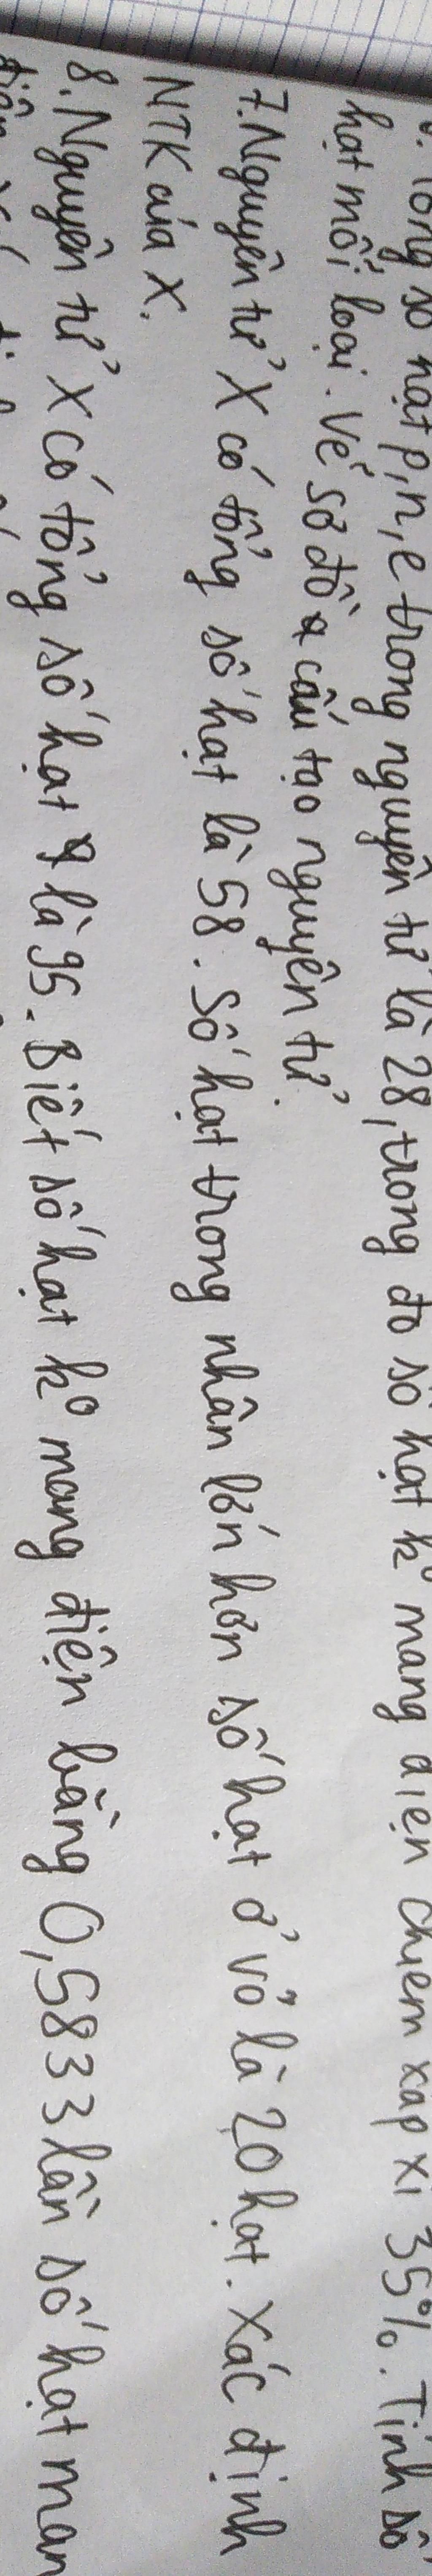 6. Tổng số hạt p, n, e trong nguyên tử là 28, trong đó số hạt k° mang điện chiếm xấp xỉ 35%. Tính số
hạt mỗi loại. Vẽ sơ đồ cấu tạo nguyên tử.
7. Nguyên tử X có tổng số hạt là 58. Số hạt trong nhân lớn hơn số hạt ở vỏ là 20 hạt. Xác định
NTK của X.
8. Nguyên tử X có tổng số hạt là 95. Biết số hạt k° mang điện bằng 0,5833 lần số hạt man